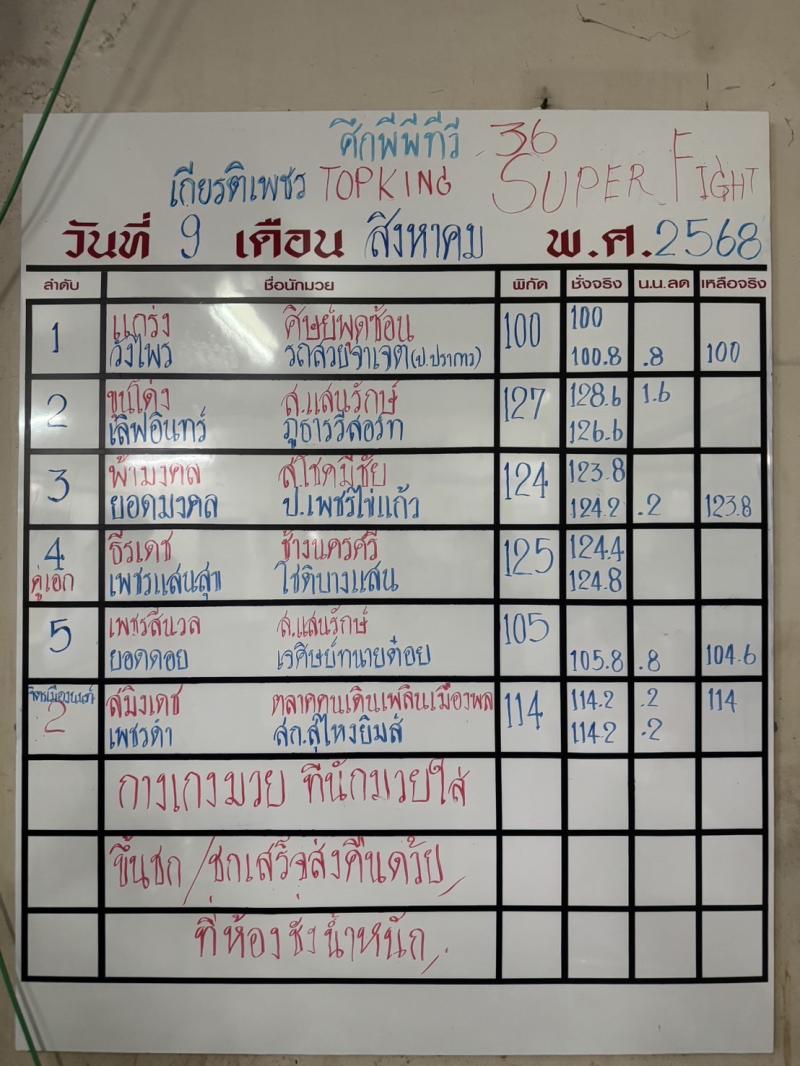 ศึกพีพีทีวี 36
เกียรติเพชร TOPKING SUPER FIGHT
วันที่ 9 เดือน สิงหาคม พ.ศ.2568
ลำดับ ชื่อนักมวย พิกัด ชั่งจริง น.น.ลด เหลือจริง
1 แกร่ง ศิษย์พุดซ้อน 100 100
วังไพร รถสวยจ่าเจต(ป.ปราการ) 100.8 .8 100
2 ขุนโด่ง ส.แสนรักษ์ 127 128.6 1.6
เลิฟอินทร์ ภูธารรีสอร์ท 126.6
3 ฟ้ามงคล ส.โชคมีชัย 124 123.8
ยอดมงคล ป.เพชรไข่แก้ว 124.2 .2 123.8
4 ธีรเดช ช้างนครศรี 125 124.4
คู่เอก เพชรแสนสุข โชติบางแสน 124.8
5 เพชรสีนวล ส.แสนรักษ์ 105
ยอดดอย เรศิษย์ทนายต๋อย 105.8 .8 104.6
2 สมิงเดช ตลาดคนเดินเพลินเมืองพล 114 114.2 .2 114
เพชรดำ สก.สุไหงยิมส์ 114.2 .2
กางเกงมวย ที่นักมวยใส่
ขึ้นชก / ชกเสร็จส่งคืนด้วย
ที่ห้องชั่งน้ำหนัก